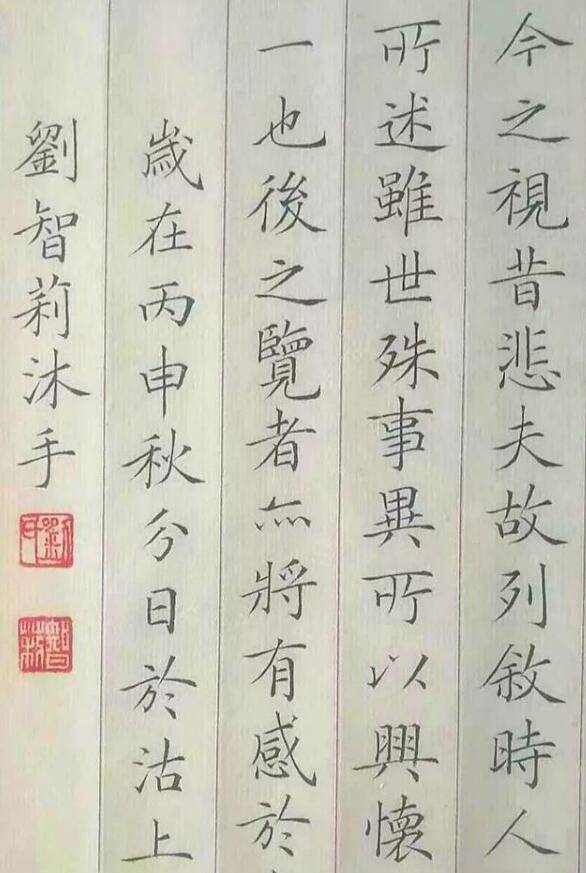 今之視昔悲夫故列敘時人
所述雖世殊事異所以興懷
一也後之覽者亦將有感於
歲在丙申秋分日於沽上
劉智莉沐手